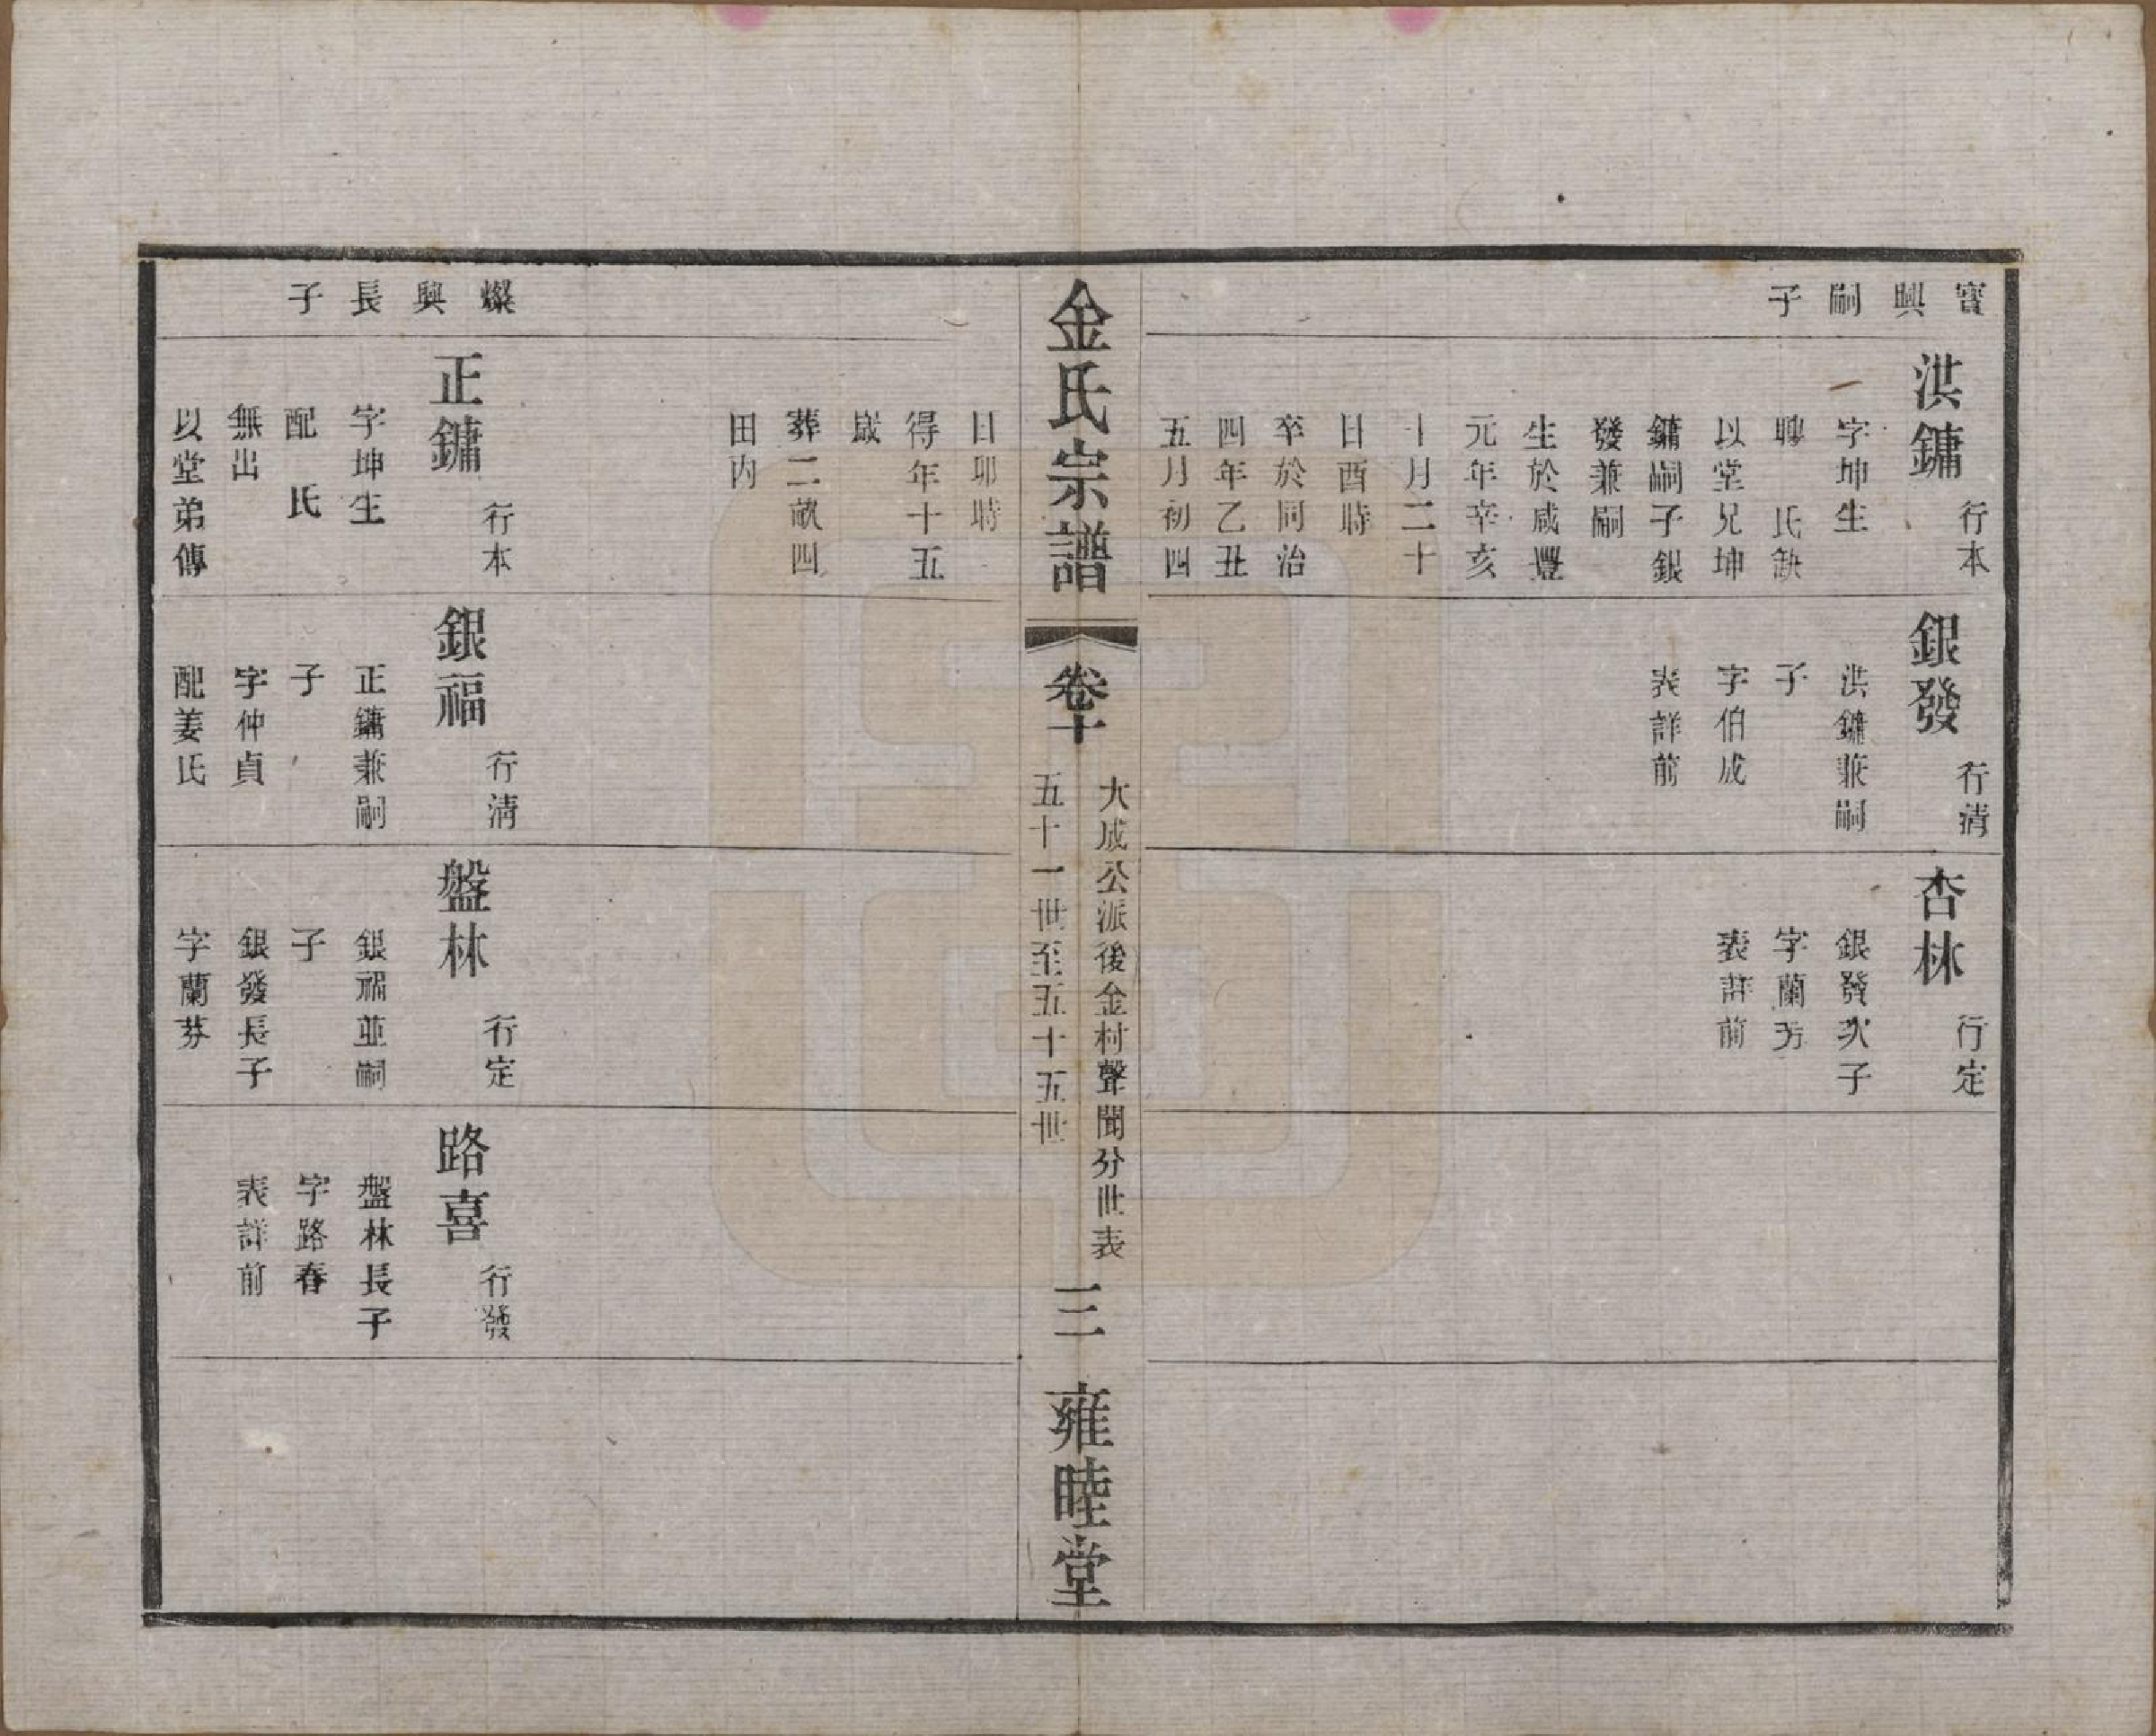 寳興嗣子
洪鏞
行本
字坤生
聘　氏缺
以堂兄坤
鏞嗣子銀
發兼嗣
生於咸豐
元年辛亥
十月二十
日酉時
卒於同治
四年乙丑
五月初四
日卯時
得年十五
歲
葬二畝四
田内
銀發
行清
洪鏞兼嗣
子
字伯成
表詳前
杏林
行定
銀發次子
字蘭芳
表詳前
金氏宗譜
卷十
大成公派後金村聲聞分世表
五十一世至五十五世
三
雍睦堂
燦興長子
正鏞
行本
字坤生
配　氏
無出
以堂弟傳
銀福
行清
正鏞兼嗣
子
字仲貞
配姜氏
盤林
行定
銀福並嗣
子
銀發長子
字蘭芬
路喜
行發
盤林長子
字路春
表詳前